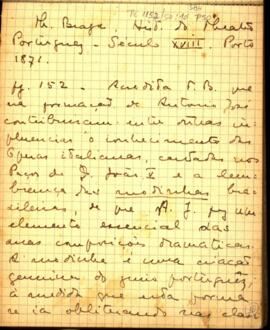 Th. Braga. Hist. do Theatro
Portuguez. – Seculo XVIII. Porto
1871.
pg. 152 – Acredita T.B. que
na formação de Antonio José
contribuiram entre outras in-
fluencias o conhecimento das
Operas italianas, cantadas nos
Paços de D. João V e a lem-
brança das modinhas bra-
sileiras, de que A. J. fez um
elemento essencial das
suas composições dramaticas.
A modinha é uma criação
genuina do genio português,
à medida que toda forma
se ia obliterando nas classes